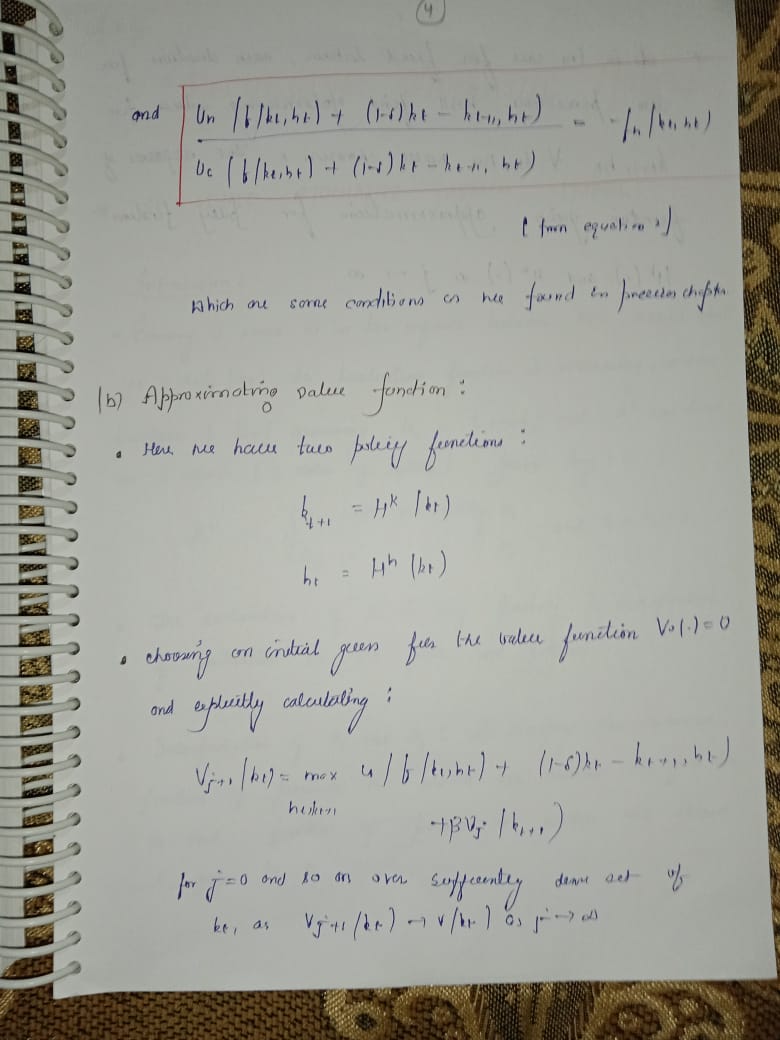 4
and Un (f(kt,ht) + (1-δ)kt - kt+1, ht) = -fn(kt,ht)
Uc (f(kt,ht) + (1-δ)kt - kt+1, ht)
[from equation 2]
Which are same conditions as we found in chapter
(b) Approximating value function :
• Here we have two policy functions :
kt+1 = Hk (kt)
ht = Hh (kt)
• choosing an initial guess for the value function V0(.) = 0
and explicitly calculating :
Vj+1(kt) = max u(f(kt,ht) + (1-δ)kt - kt+1, ht)
ht,kt+1
+βVj(kt+1)
for j=0 and so on over sufficiently dense set of
kt, as Vj+1(kt) → V(kt) as j → ∞